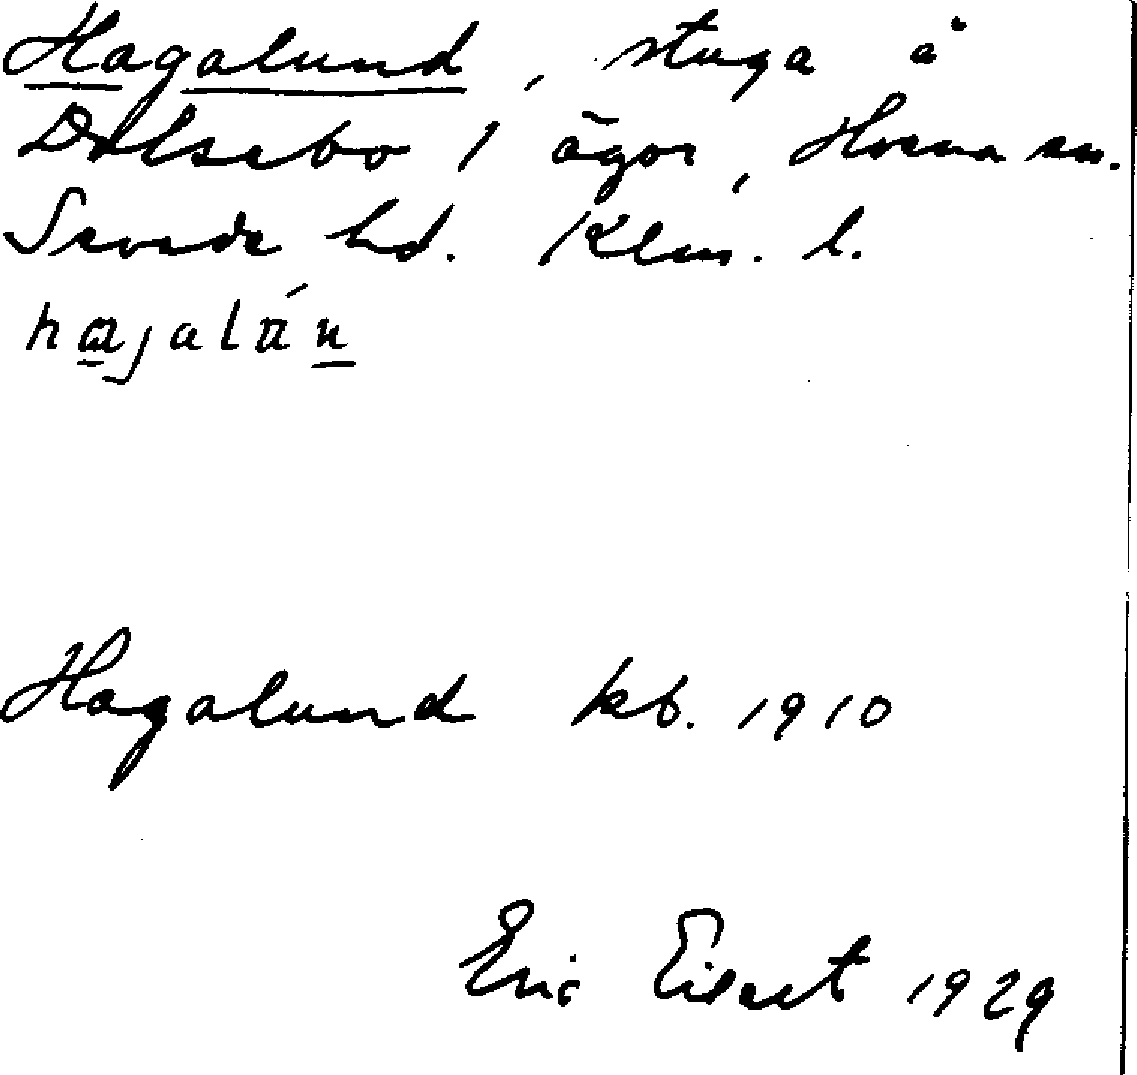 Hagalund, stuga å
Dalsebo 1 ägor, Horna sn.
Sevede hd. Klm. l.
hajalún
Hagalund kb. 1910
Eric Eilert 1929